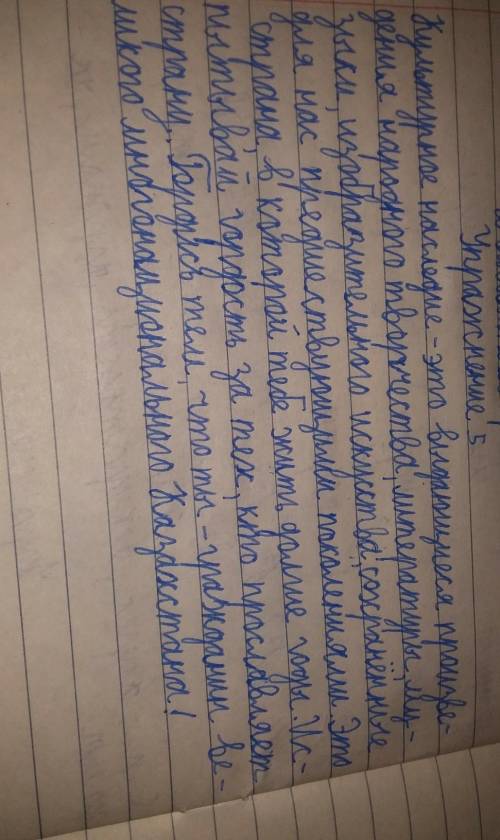 Упражнение 5
Культурное наследие - это выдающиеся произве-
дения народного творчества, литературы, му-
зыки, изобразительного искуства, сохранённые
для нас предшествующими поколениями. Это
страна в которой тебе жить долгие годы. Ис-
пытывай гордость за тех, кто прославляет
страну. Гордись тем, что ты - гражданин ве-
ликого многонационального Казахстана!